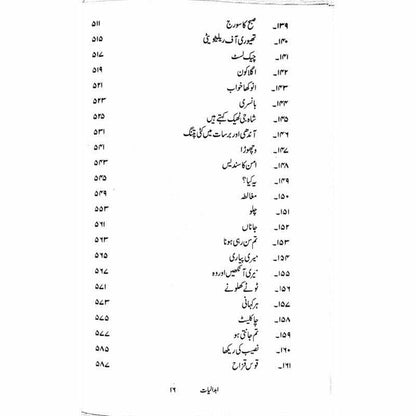 ۱۳۹۔ صبح کا سورج ۵۱۱
۱۴۰۔ تھیوری آف ریلیٹیویٹی ۵۱۵
۱۴۱۔ چیک لسٹ ۵۱۷
۱۴۲۔ اگلا کون ۵۱۹
۱۴۳۔ انوکھا خواب ۵۲۱
۱۴۴۔ بانسری ۵۲۳
۱۴۵۔ شاہ جی ٹھیک کہتے ہیں ۵۲۵
۱۴۶۔ آندھی اور برسات میں کٹی پتنگ ۵۳۱
۱۴۷۔ وچھوڑا ۵۴۱
۱۴۸۔ امن کا سندیس ۵۴۳
۱۴۹۔ یہ کیا؟ ۵۴۵
۱۵۰۔ مغالطہ ۵۴۹
۱۵۱۔ چلو ۵۵۳
۱۵۲۔ جاناں ۵۶۱
۱۵۳۔ تم سن رہی ہو نا ۵۶۳
۱۵۴۔ میری پیاری ۵۶۵
۱۵۵۔ تیری آنکھیں اور وہ ۵۶۷
۱۵۶۔ ٹوٹے کھلونے ۵۷۱
۱۵۷۔ ہر کہانی ۵۷۳
۱۵۸۔ چاکلیٹ ۵۷۵
۱۵۹۔ تم جانتی ہو ۵۷۷
۱۶۰۔ نصیب کی ریکھا ۵۸۵
۱۶۱۔ قوس قزاح ۵۸۷
۱۶